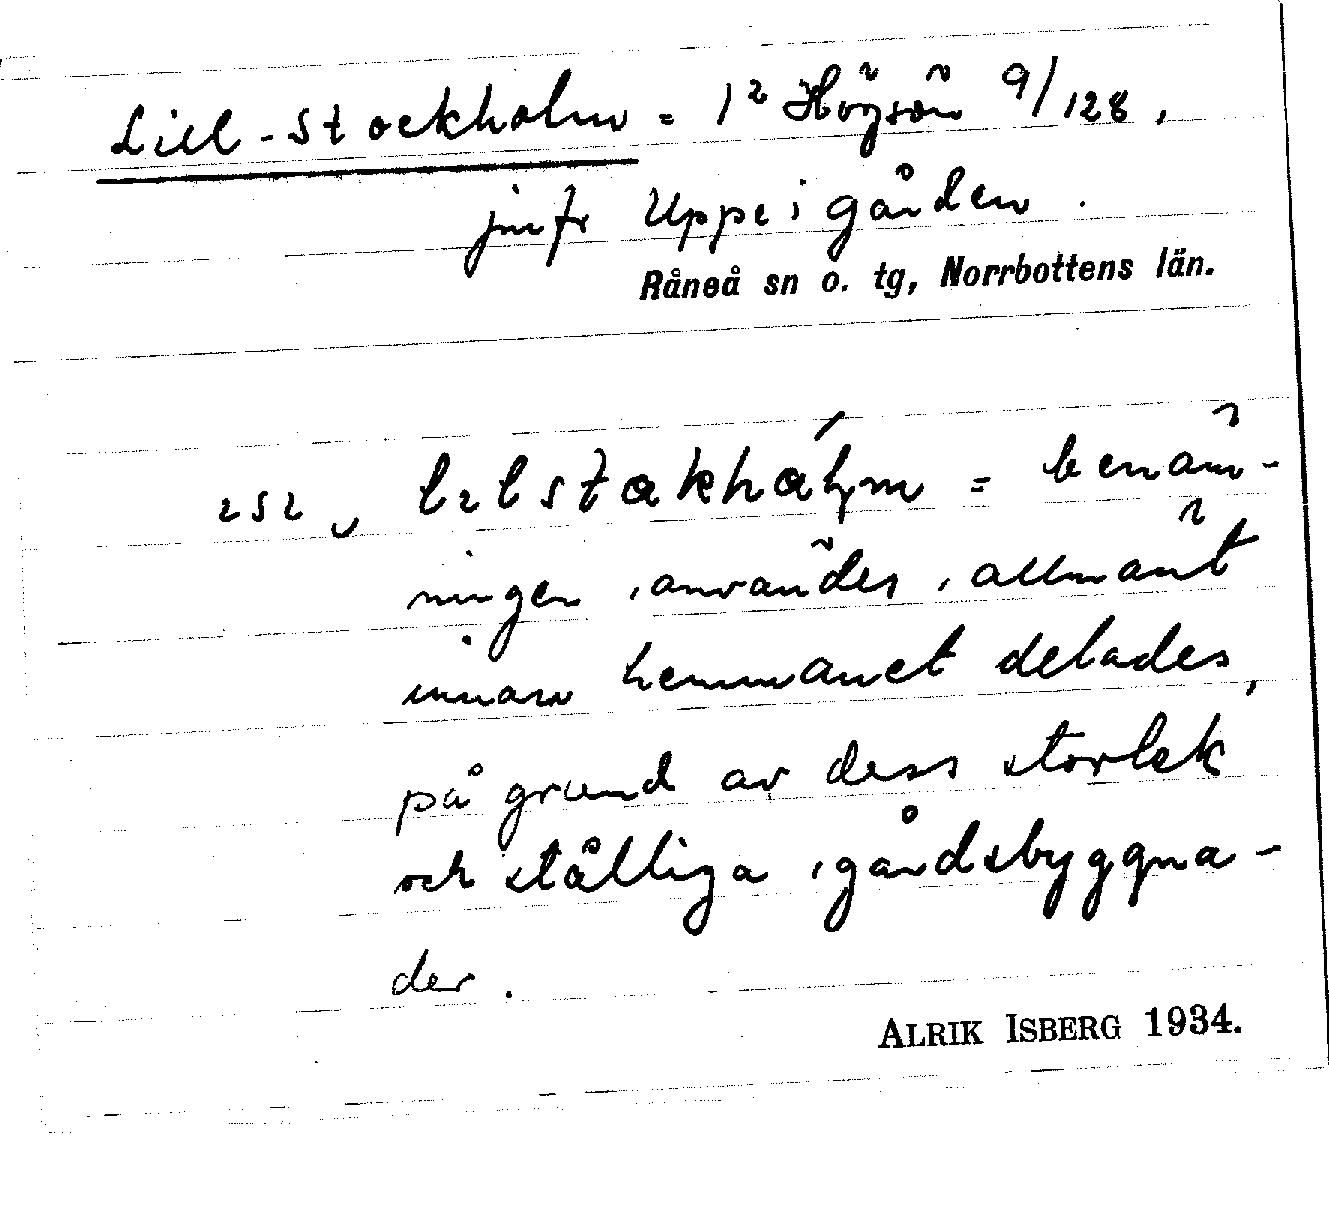 Lill-Stockholm = 1² Högsön 9/128,
jmfr Uppe i gården.
Råneå sn o. tg, Norrbottens län.
lɩlstakhálm = benäm-
ningen användes allmänt
innan hemmanet delades,
på grund av dess storlek
och ståtliga gårdsbyggna-
der.
ALRIK ISBERG 1934.